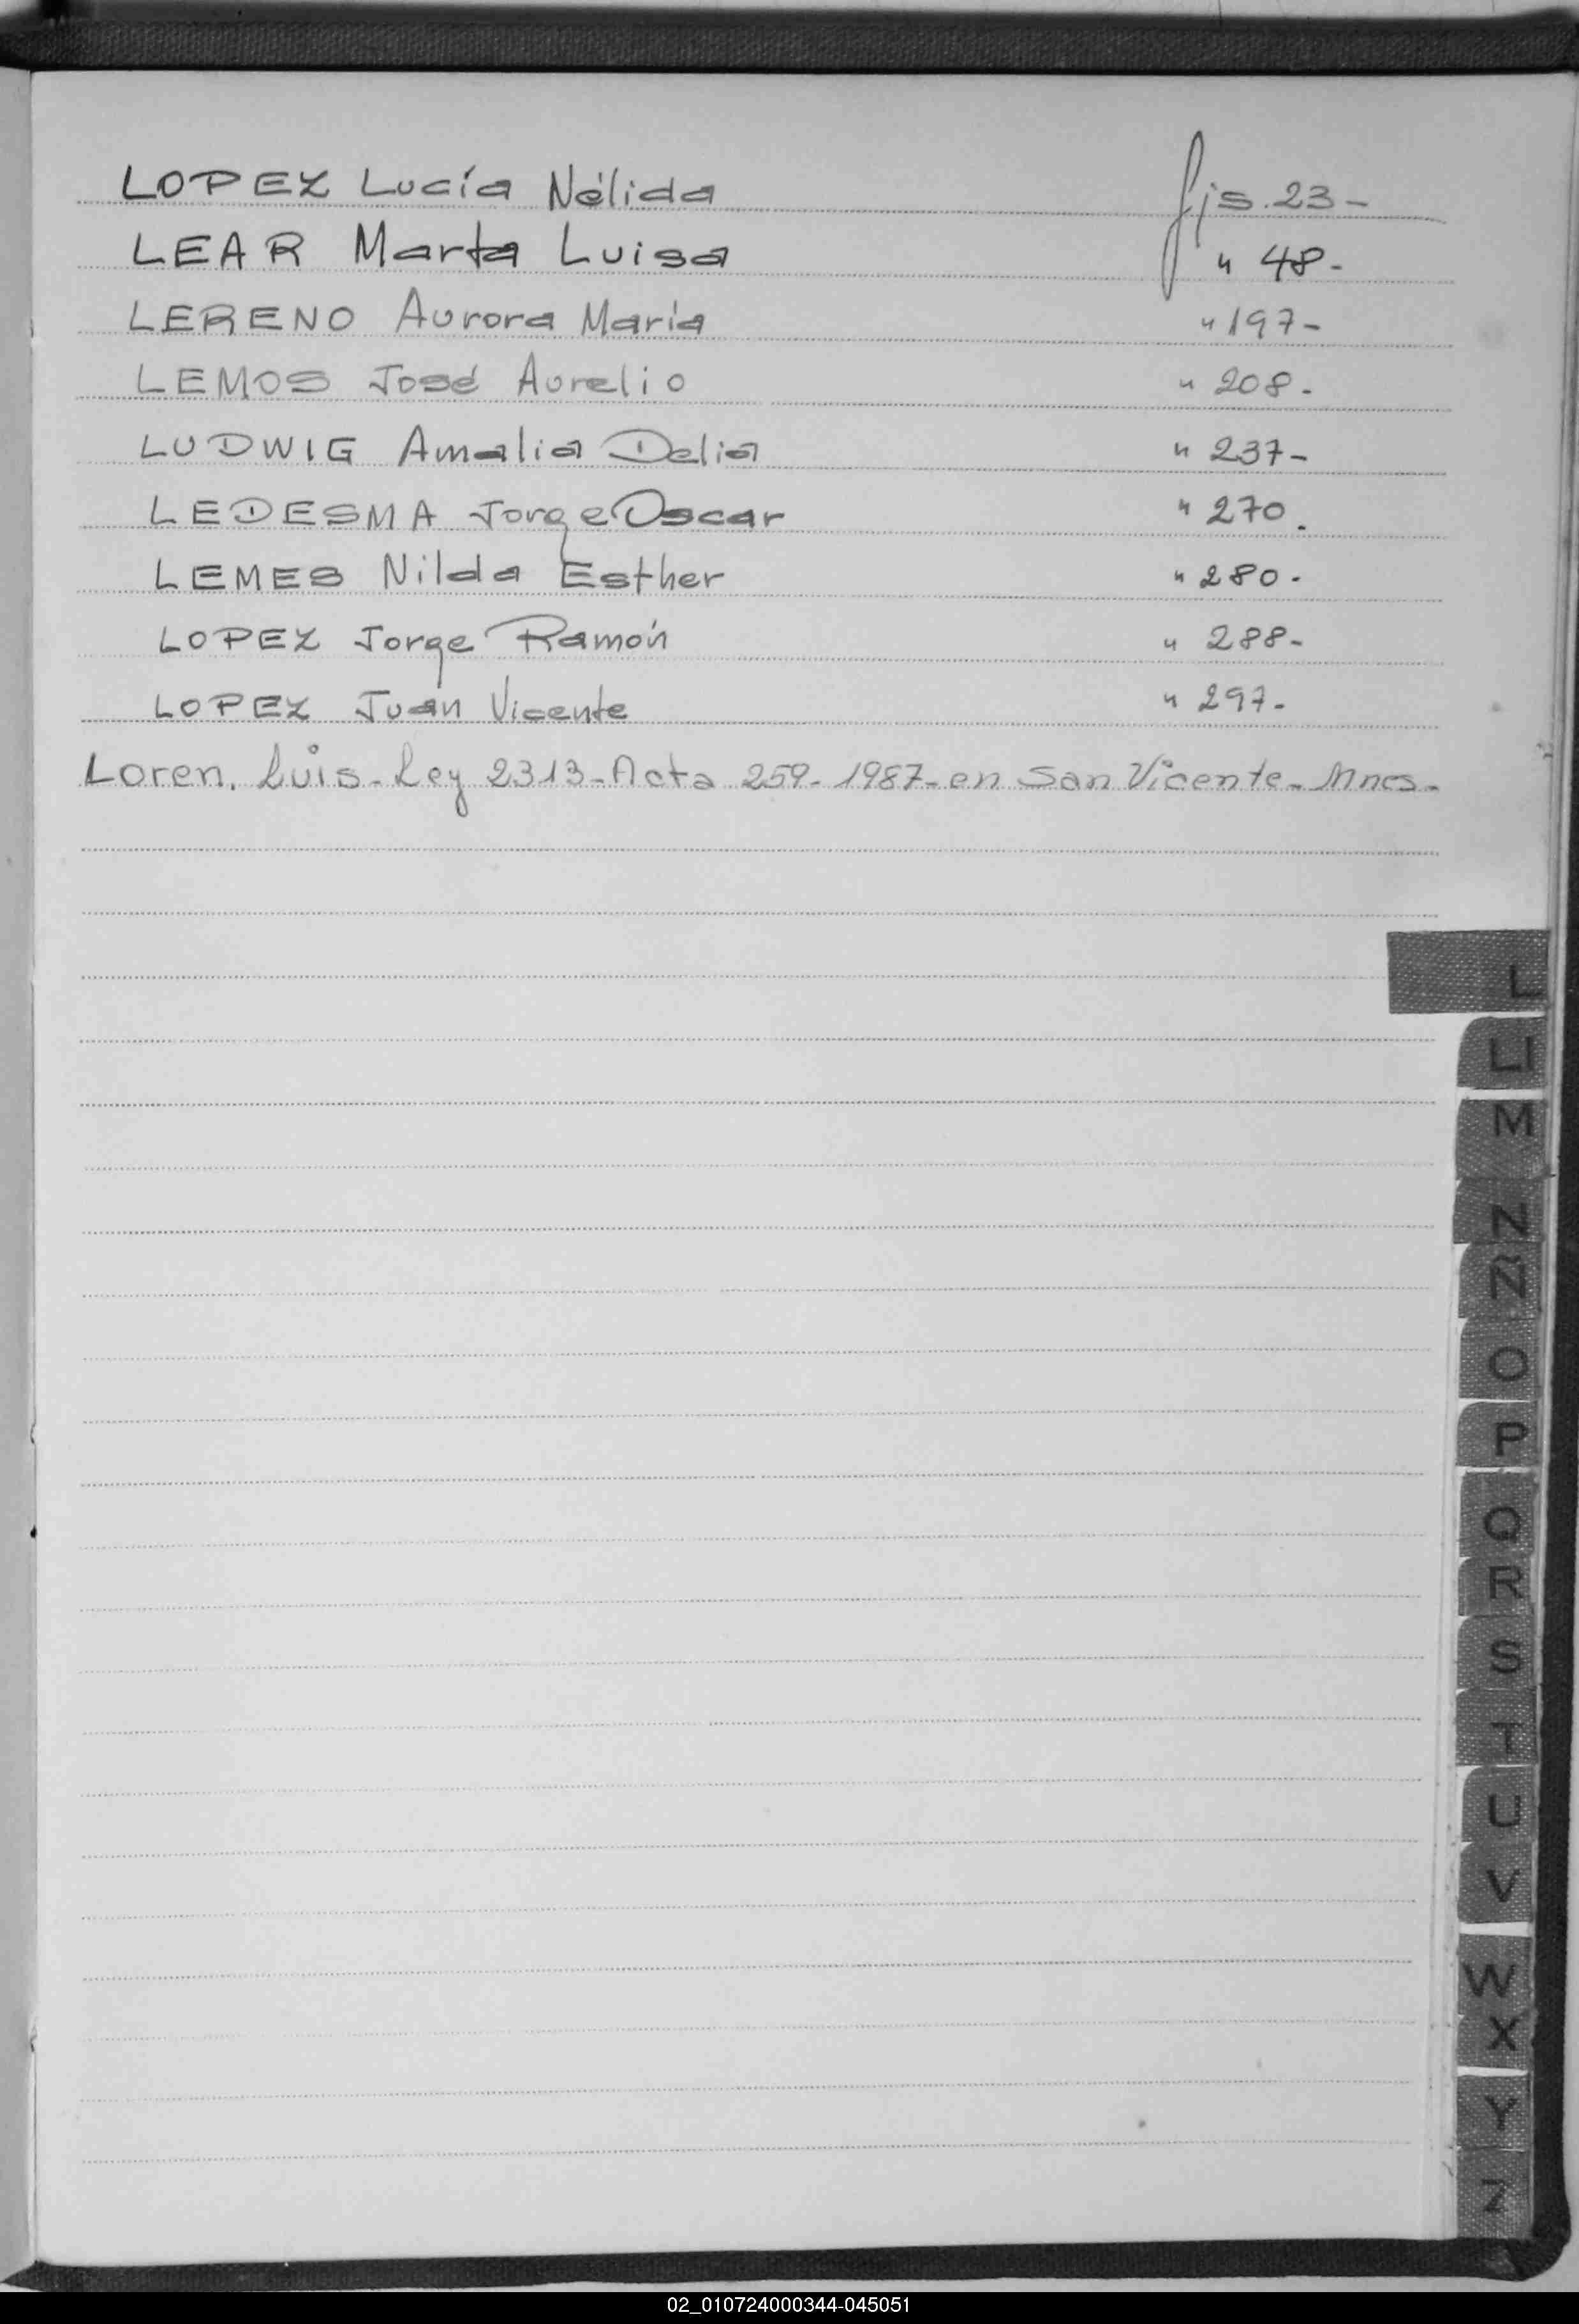 LOPEZ Lucía Nélida fjs. 23-
LEAR Marta Luisa " 48-
LERENO Aurora María " 197-
LEMOS José Aurelio " 208-
LUDWIG Amalia Delia " 237-
LEDESMA Jorge Oscar " 270.
LEMES Nilda Esther " 280-
LOPEZ Jorge Ramón " 288-
LOPEZ Juan Vicente " 297-
Loren. Luis-Ley 2313-Acta 259-1987-en San Vicente-Mnes-
L
Ll
M
N
Ñ
O
P
Q
R
S
T
U
V
W
X
Y
Z
02_010724000344-045051